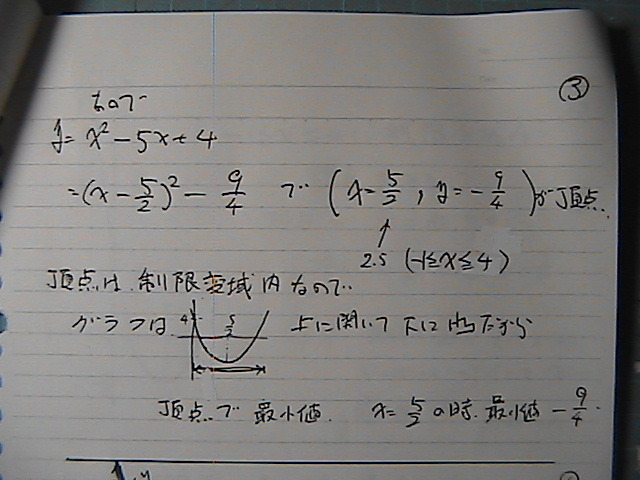 ③
なので
y = x² − 5x + 4
= (x − 5/2)² − 9/4 で (x = 5/2, y = −9/4) が頂点.
2.5 (-1≦x≦4)
頂点は 制限変域内なので
グラフは 4 5/2 上に開いて 下に凸だから
頂点で 最小値. x = 5/2 の時 最小値 −9/4.
y